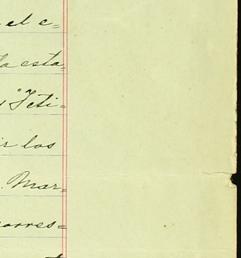 el e-
la esta-
"Teti-
ir los
Mar-
corres-